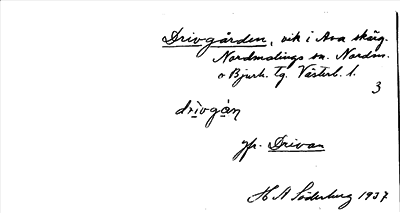 Drivgården, vik i Ava skärg.
Nordmalings sn. Nordm.
o Bjurh. tg. Västerb. l.
3
drivgàn
jfr. Drivan
H A Söderberg 1937